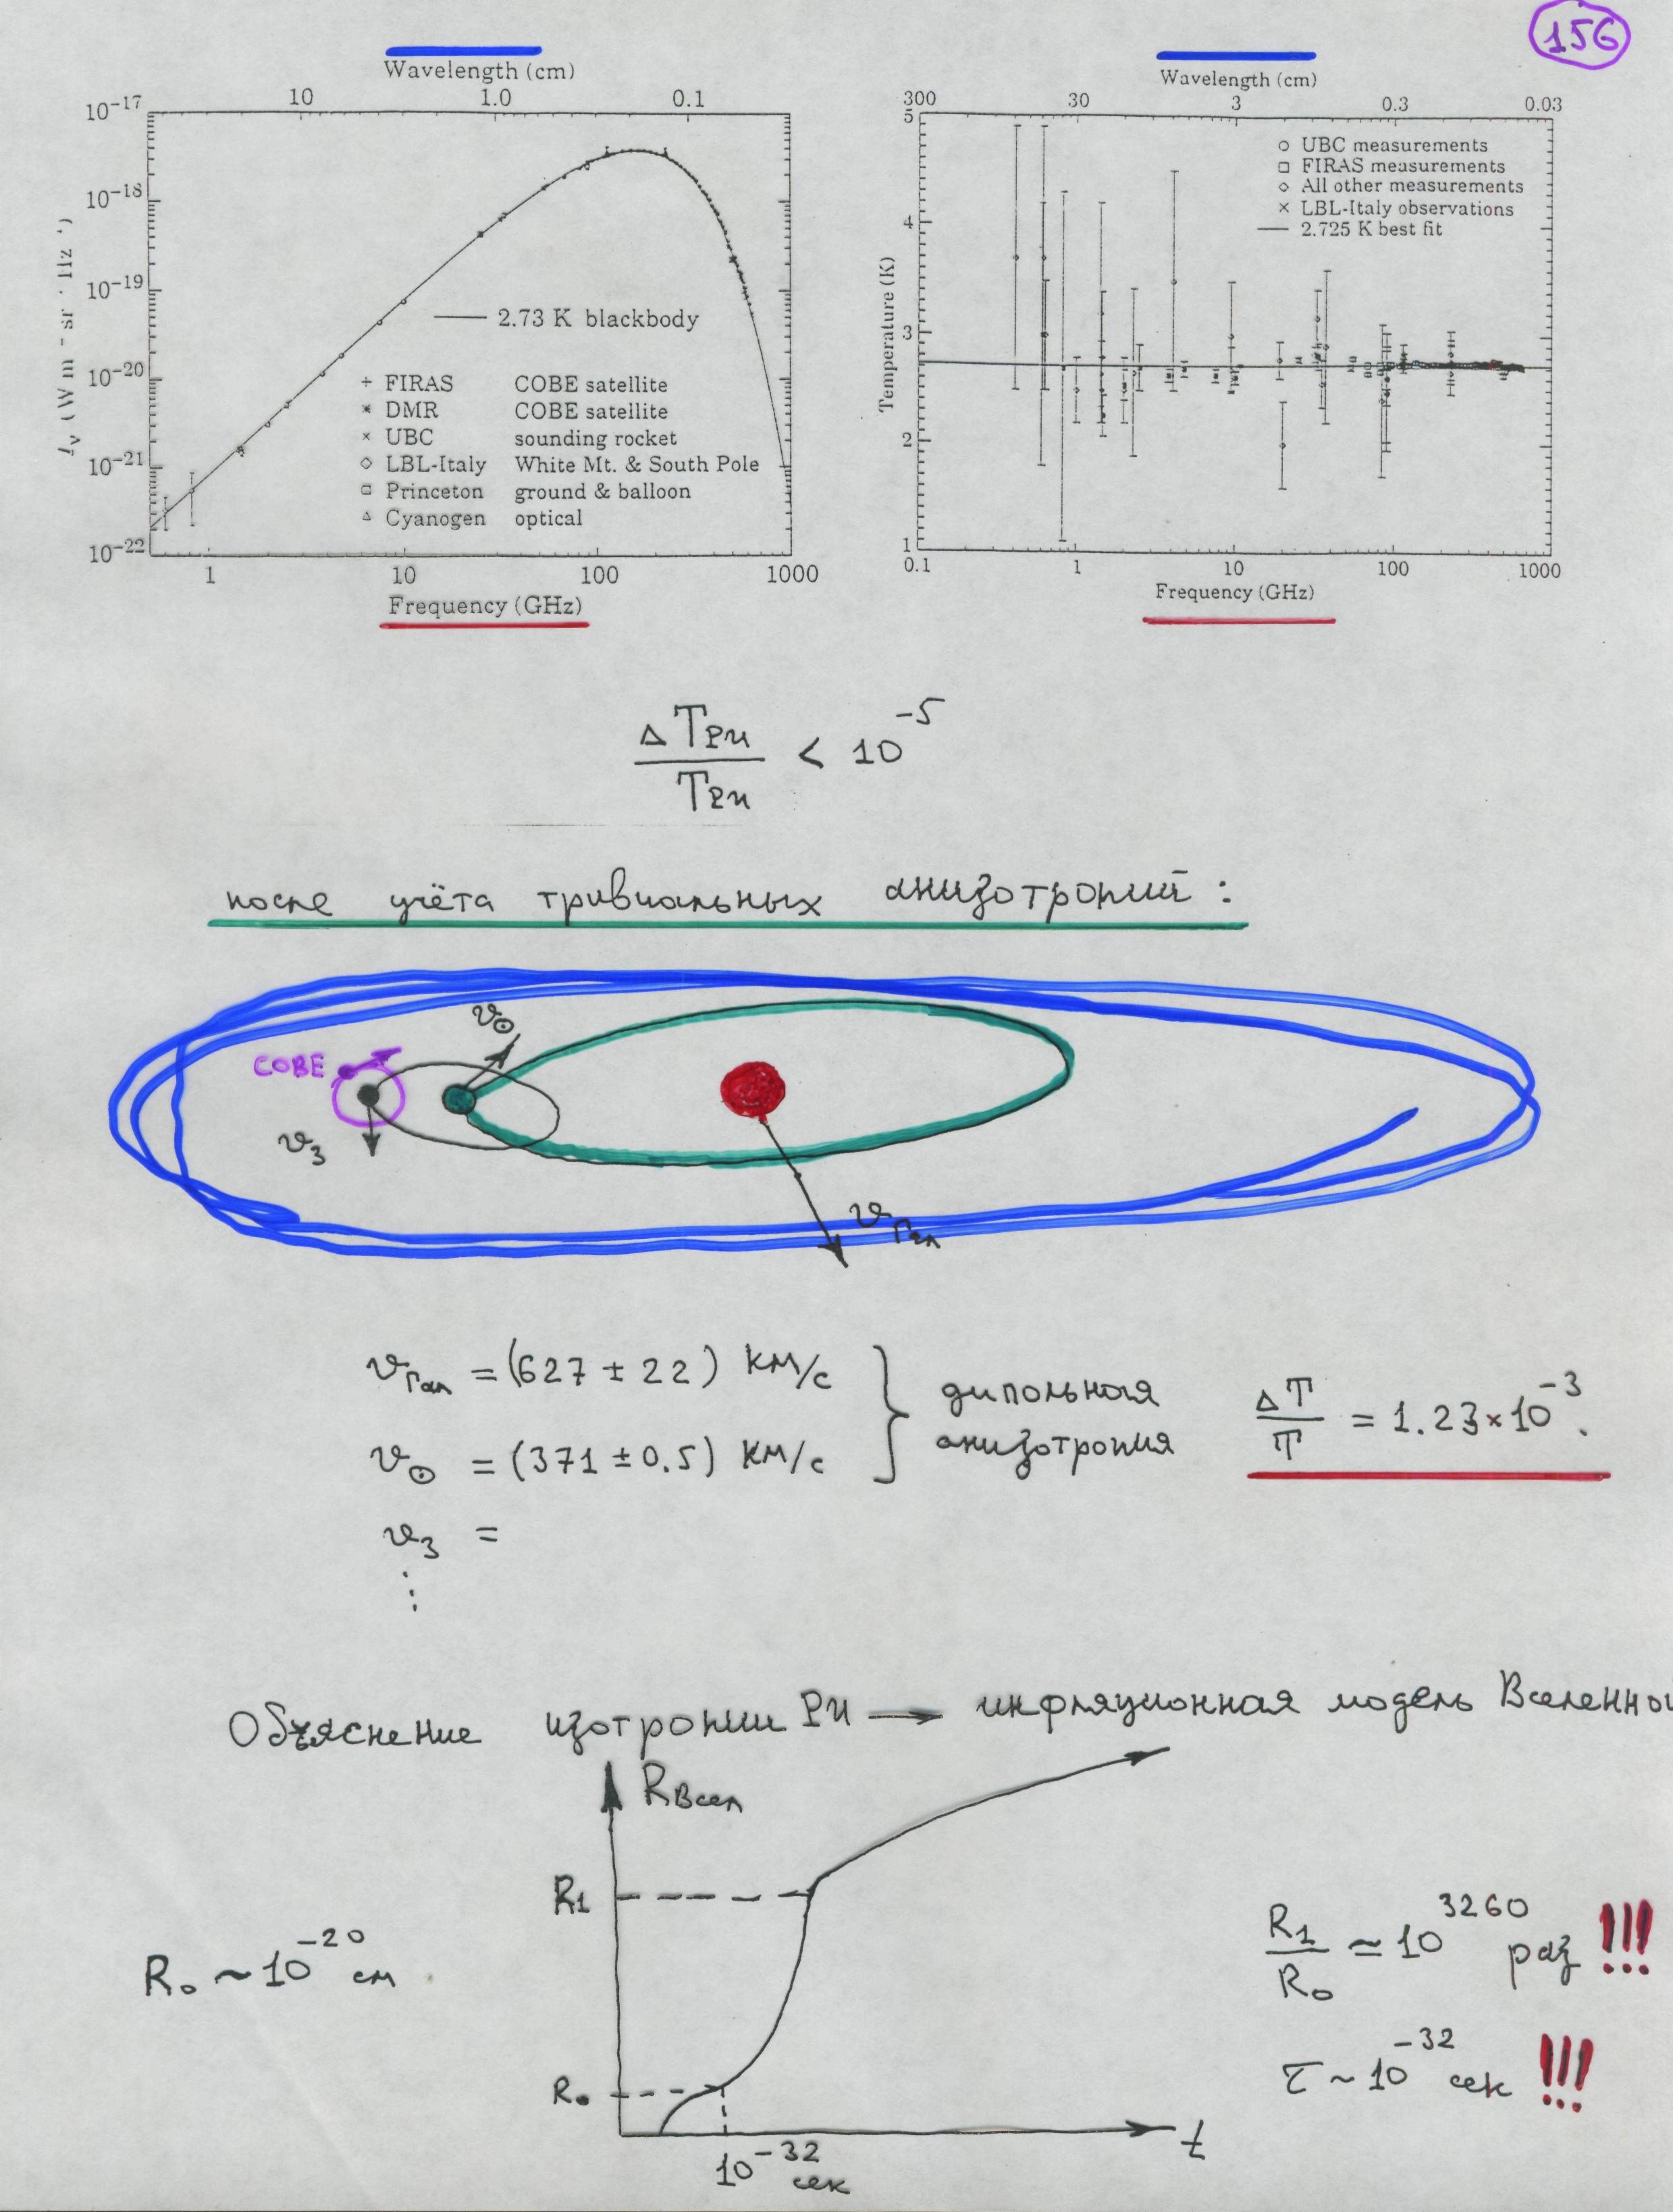 156
Wavelength (cm)
10 1.0 0.1
10⁻¹⁷
10⁻¹⁸
10⁻¹⁹
10⁻²⁰
10⁻²¹
10⁻²²
2.73 K blackbody
+ FIRAS COBE satellite
* DMR COBE satellite
× UBC sounding rocket
◇ LBL-Italy White Mt. & South Pole
□ Princeton ground & balloon
△ Cyanogen optical
1 10 100 1000
Frequency (GHz)
Wavelength (cm)
300 30 3 0.3 0.03
5
4
3
2
1
Temperature (K)
○ UBC measurements
□ FIRAS measurements
◇ All other measurements
× LBL-Italy observations
— 2.725 K best fit
0.1 1 10 100 1000
Frequency (GHz)
ΔTри / Tри < 10⁻⁵
после учёта тривиальных анизотропий:
COBE
v⊙
v₃
vГал
vГал = (627 ± 22) км/с
v⊙ = (371 ± 0.5) км/с
v₃ =
⋮
дипольная
анизотропия
ΔT/T = 1.23×10⁻³.
Объяснение изотропии РИ → инфляционная модель Вселенно
RВсел
R₁
R₀
t
10⁻³² сек
R₀ ~ 10⁻²⁰ см
R₁/R₀ ≃ 10³²⁶⁰ раз !!!
τ ~ 10⁻³² сек !!!